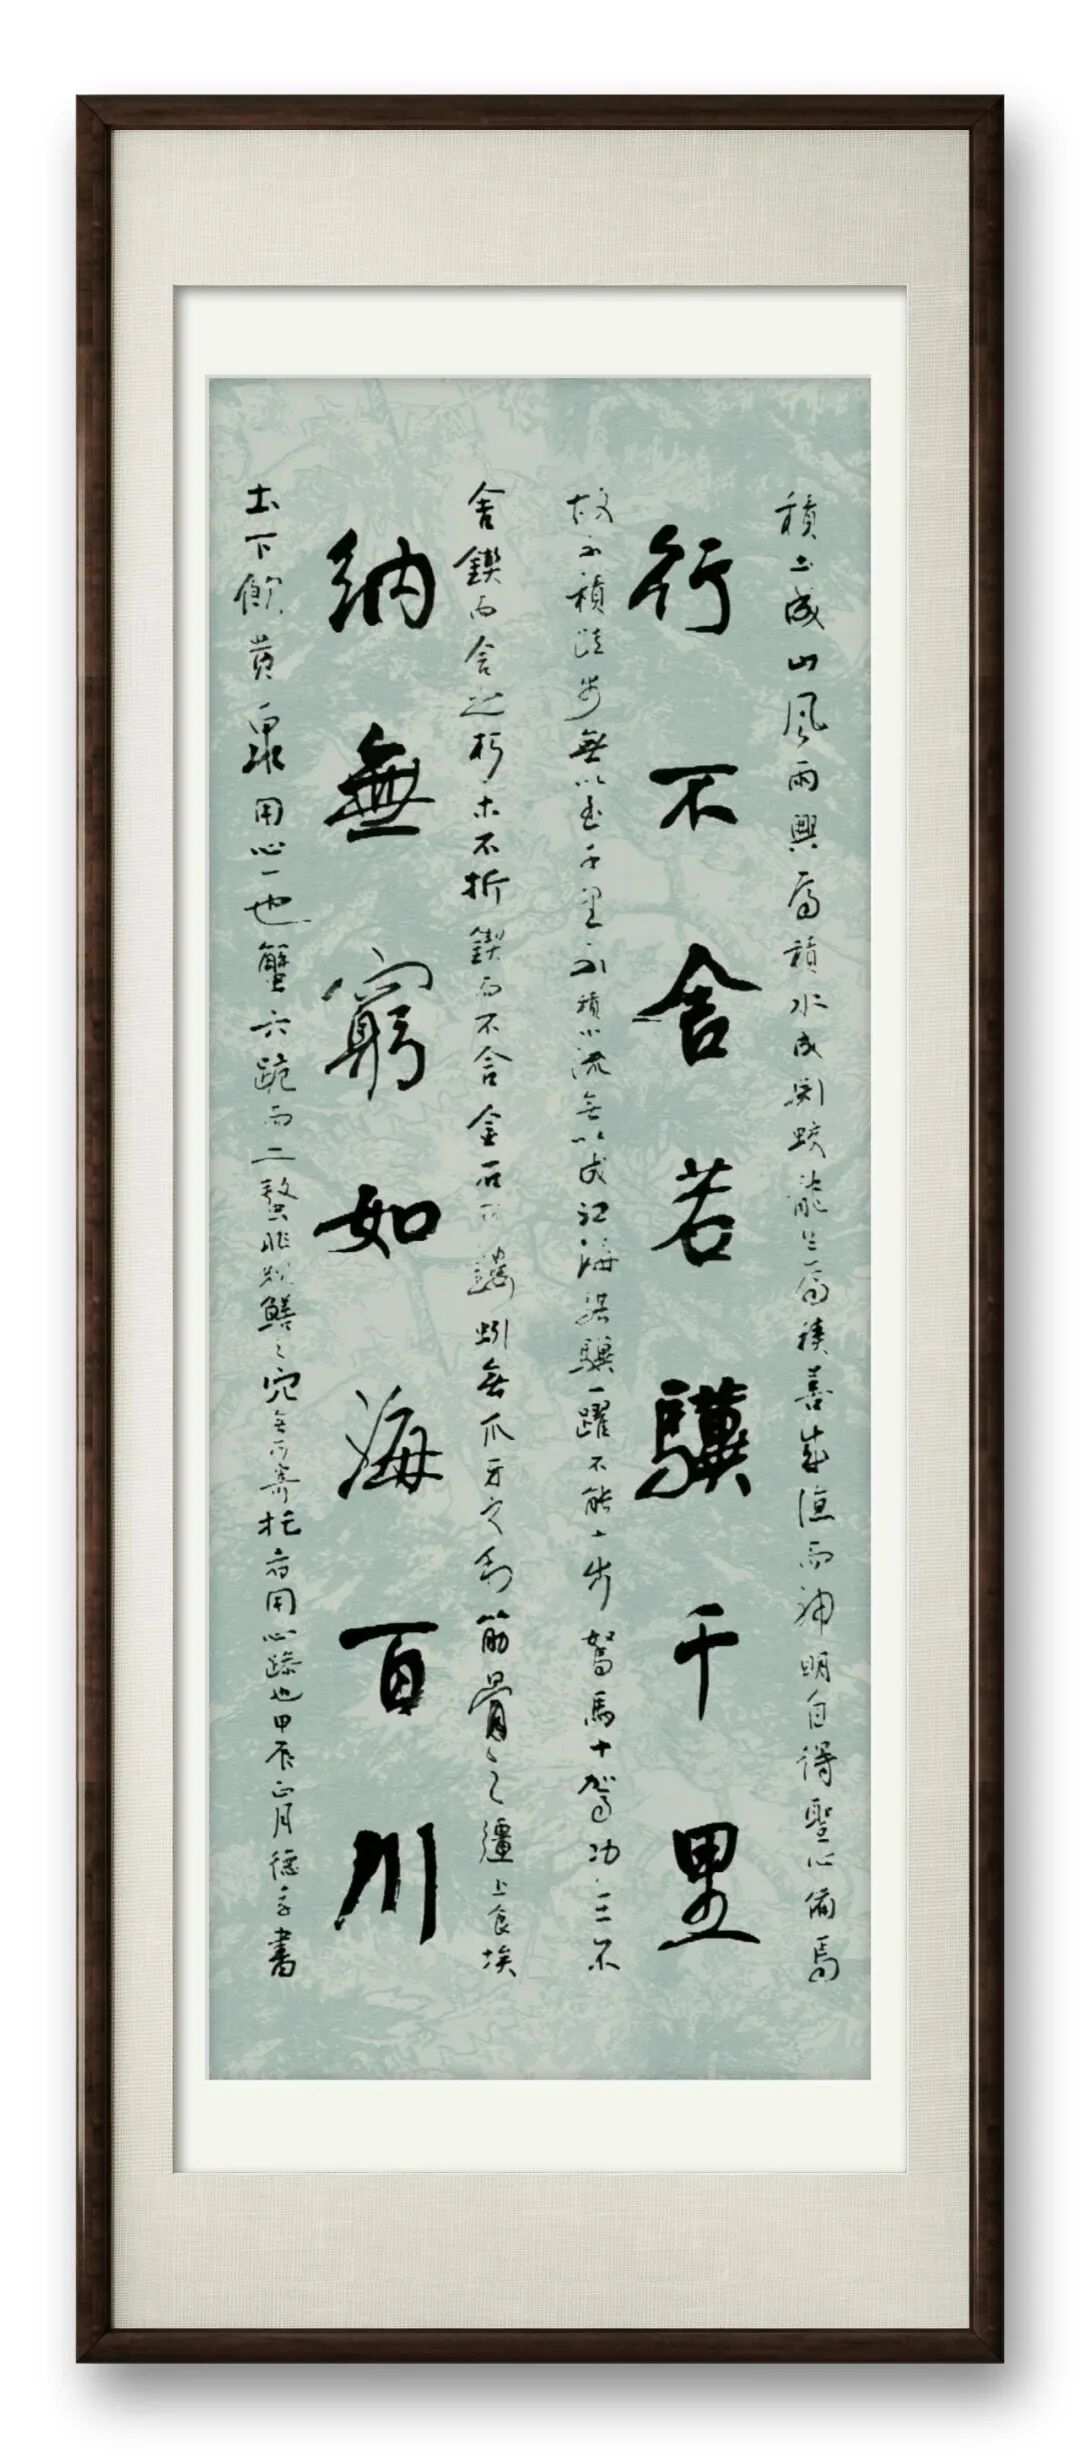 積土成山風雨興焉積水成渊蛟龍生焉積善成德而神明自得聖心備焉
行不舍若驥千里
故不積跬步無以至千里不積小流無以成江海骐驥一躍不能十步駑馬十駕功在不
舍鍥而舍之朽木不折鍥而不舍金石可鏤蚓無爪牙之利筋骨之彊上食埃
納無窮如海百川
土下飲黄泉用心一也蟹六跪而二螯非蛇鱔之穴無可寄托者用心躁也甲辰正月德書